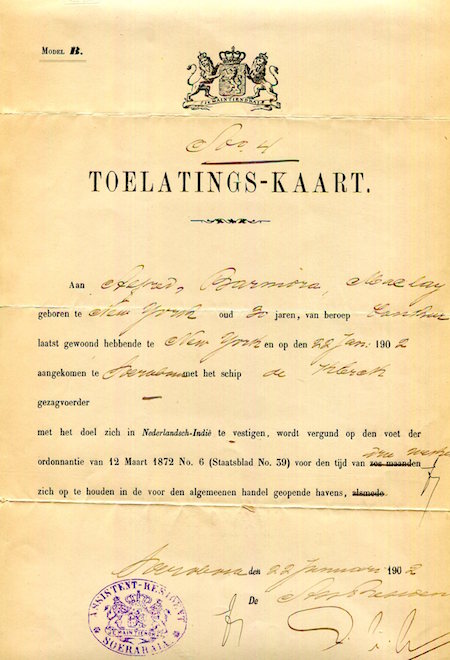 MODEL B.
JE MAINTIENDRAI
No. 4
TOELATINGS-KAART.
Aan Alfred, Barmore, Maclay
geboren te New York oud 30 jaren, van beroep
laatst gewoond hebbende te New York en op den 22 Jan: 1902
aangekomen te Soerabaia met het schip de Klerck
gezagvoerder —
met het doel zich in Nederlandsch-Indië te vestigen, wordt vergund op den voet der
ordonnantie van 12 Maart 1872 No. 6 (Staatsblad No. 39) voor den tijd van zes maanden drie weken
zich op te houden in de voor den algemeenen handel geopende havens, alsmede
Soerabaia den 22 Januari 1902
De
ASSISTENT-RESIDENT
JE MAINTIENDRAI
SOERABAIA